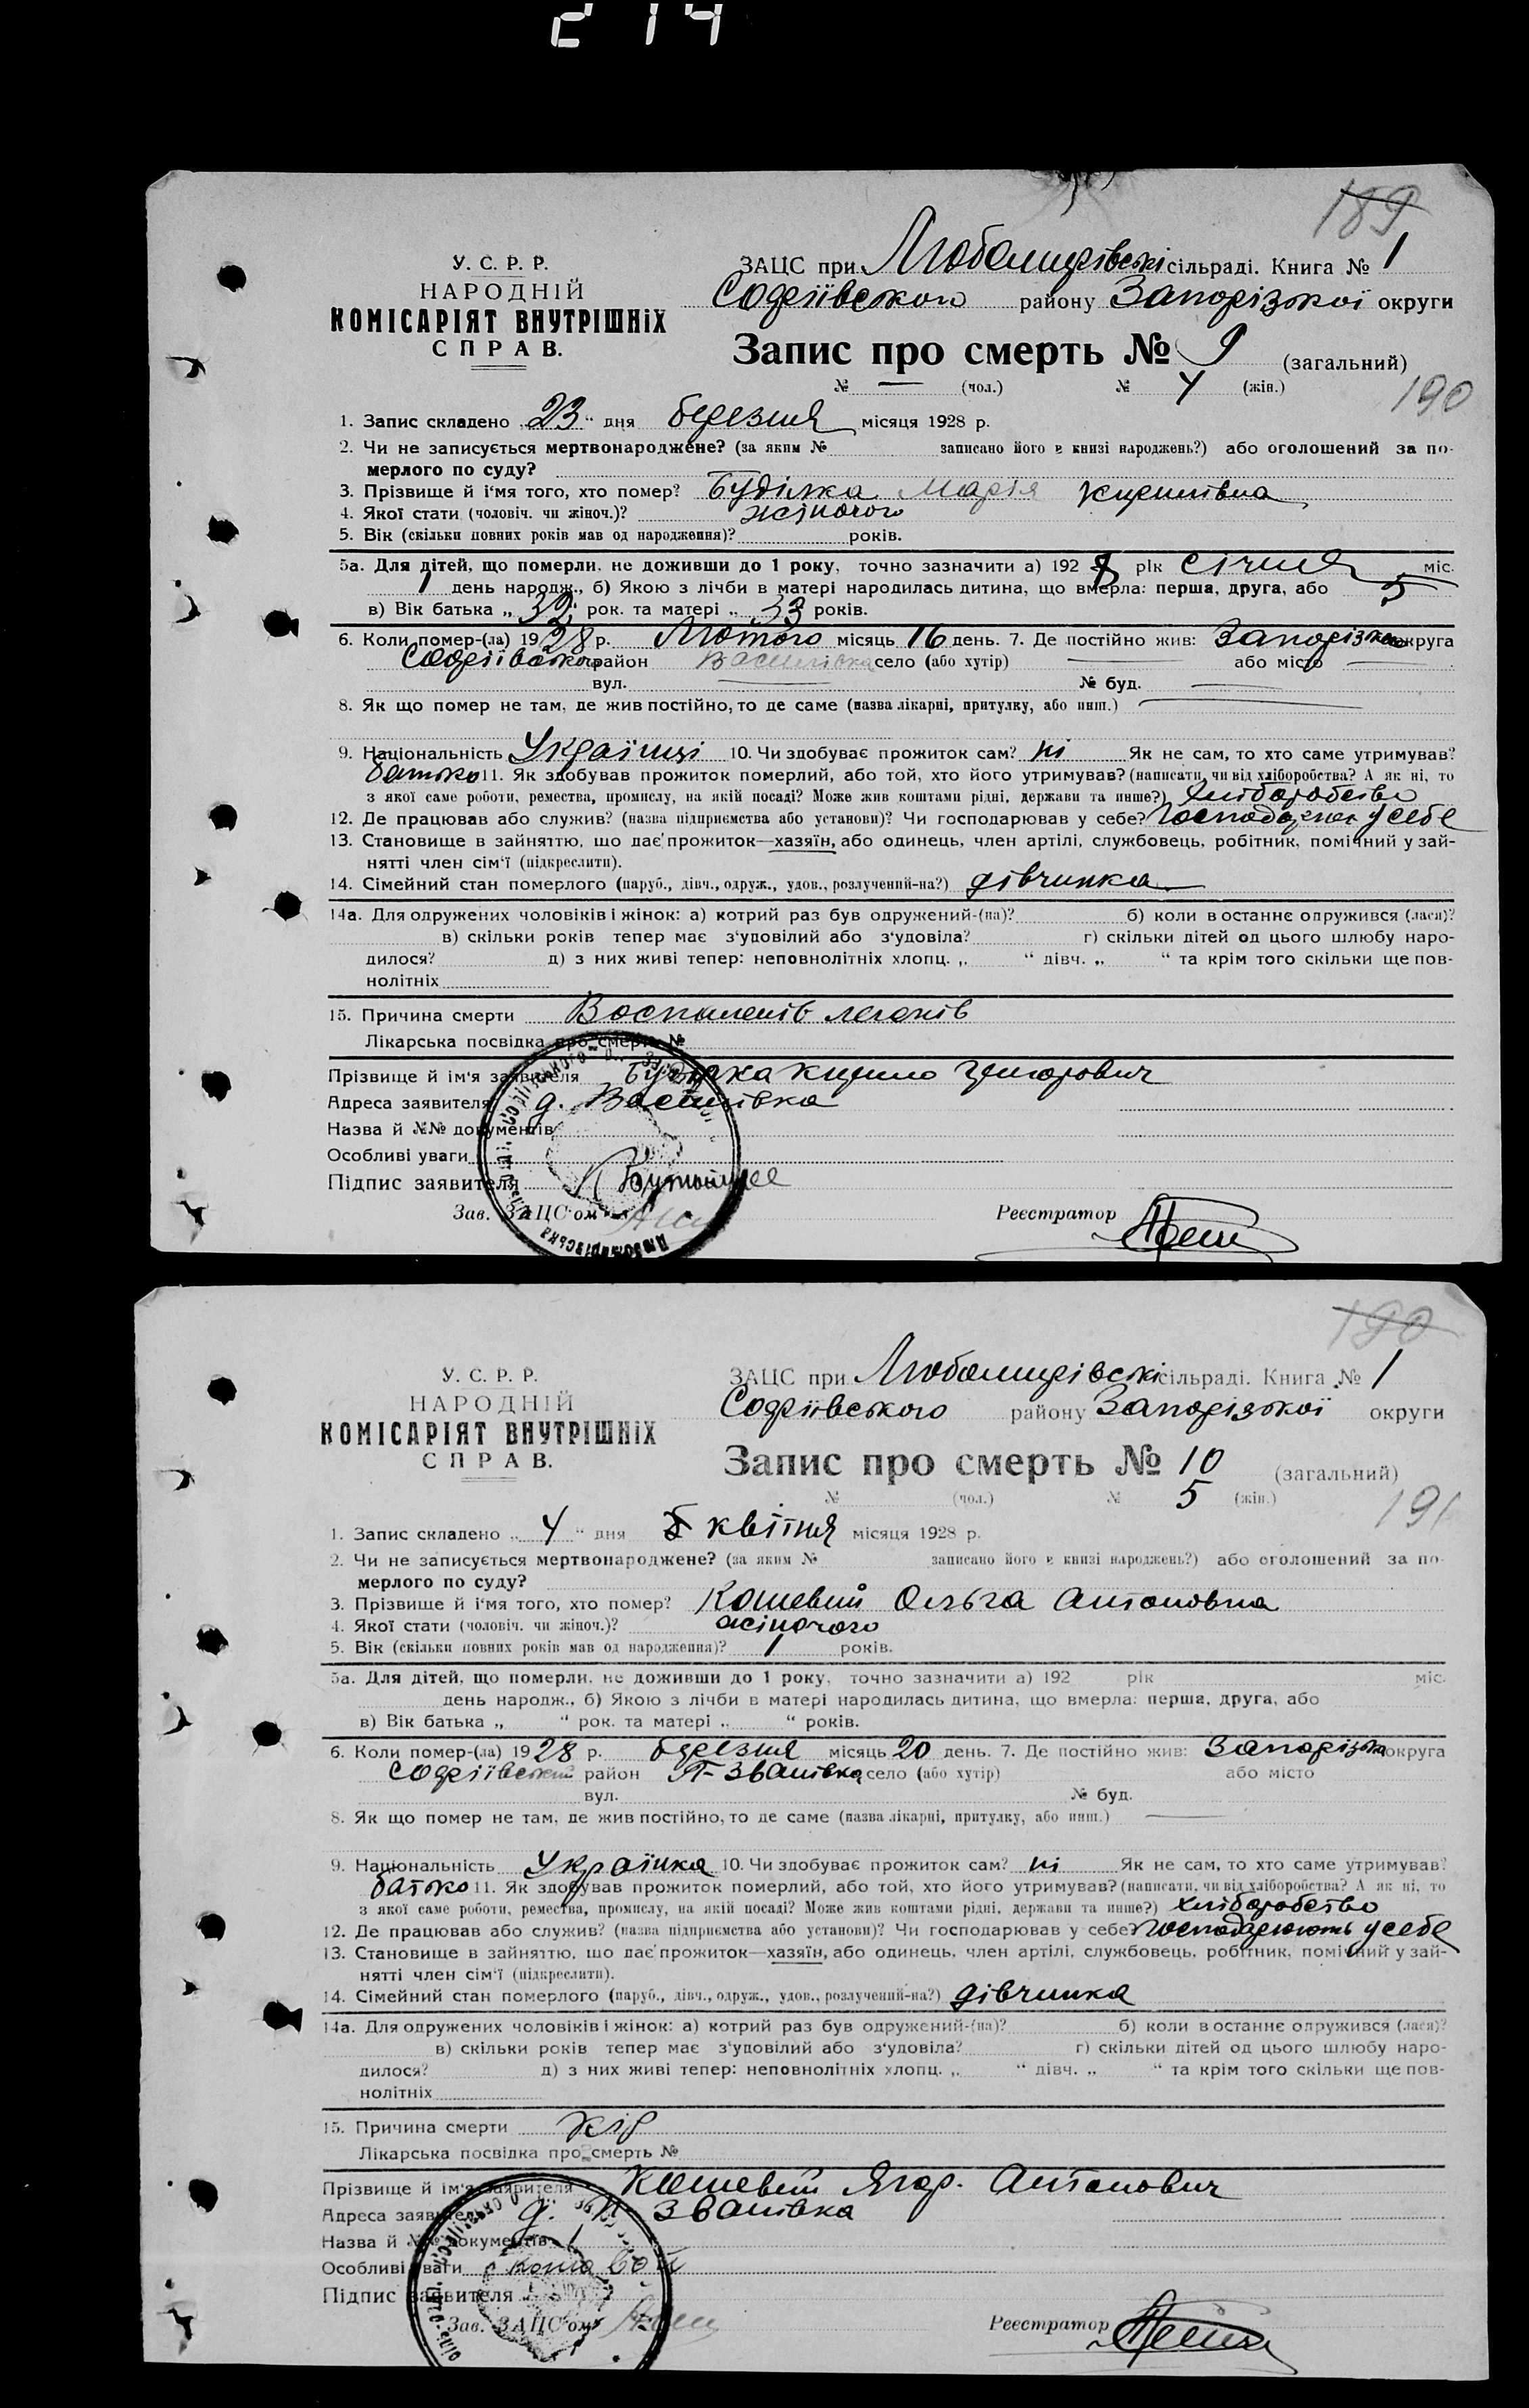 214
189
У. С. Р. Р.
НАРОДНІЙ
КОМІСАРІЯТ ВНУТРІШНІХ
СПРАВ.
ЗАЦС при Любомирівські сільраді. Книга № 1
Софіївського району Запорізької округи
Запис про смерть № 9 (загальний)
№ — (чол.) № 4 (жін.)
190
1. Запис складено „23“ дня березня місяця 1928 р.
2. Чи не записується мертвонароджене? (за яким № записано його в книзі народжень?) або оголошений за по-
мерлого по суду?
3. Прізвище й ім'я того, хто помер? Буділка Марія Кирилівна
4. Якої стати (чоловіч. чи жіноч.)? жіночого
5. Вік (скільки повних років мав од народження)? років.
5а. Для дітей, що померли, не доживши до 1 року, точно зазначити а) 1928 рік січня міс.
1 день народж., б) Якою з лічби в матері народилась дитина, що вмерла: перша, друга, або 5
в) Вік батька „32“ рок. та матері „33 років.
6. Коли помер-(ла) 1928 р. Лютого місяць 16 день. 7. Де постійно жив: Запорізька округа
Софіївського район Василівка село (або хутір) — або місто —
вул. — № буд. —
8. Як що помер не там, де жив постійно, то де саме (назва лікарні, притулку, або инш.) —
9. Національність Українці 10. Чи здобуває прожиток сам? ні Як не сам, то хто саме утримував?
батько 11. Як здобував прожиток померлий, або той, хто його утримував? (написати, чи від хліборобства? А як ні, то
з якої саме роботи, ремества, промислу, на якій посаді? Може жив коштами рідні, держави та инше?) хліборобство
12. Де працював або служив? (назва підприємства або установи)? Чи господарював у себе? у себе
13. Становище в зайняттю, що дає прожиток—хазяїн, або одинець, член артілі, службовець, робітник, помічний у зай-
нятті член сім'ї (підкреслити).
14. Сімейний стан померлого (паруб., дівч., одруж., удов., розлучений-на?) дівчинка
14а. Для одружених чоловіків і жінок: а) котрий раз був одружений-(на)? б) коли в останнє одружився (лася)?
в) скільки років тепер має з'удовілий або з'удовіла? г) скільки дітей од цього шлюбу наро-
дилося? д) з них живі тепер: неповнолітніх хлопц. „ “ дівч. „ “ та крім того скільки ще пов-
нолітніх
15. Причина смерти Воспаленів легенів
Лікарська посвідка про смерть №
Прізвище й ім'я заявителя Буділка Кирило Григорович
Адреса заявителя д. Василівка
Назва й №№ документів
Особливі уваги
Підпис заявителя
Зав. ЗАЦС'ом
Реєстратор
190
У. С. Р. Р.
НАРОДНІЙ
КОМІСАРІЯТ ВНУТРІШНІХ
СПРАВ.
ЗАЦС при Любомирівські сільраді. Книга № 1
Софіївського району Запорізької округи
Запис про смерть № 10 (загальний)
№ (чол.) № 5 (жін.)
191
1. Запис складено „4“ дня квітня місяця 1928 р.
2. Чи не записується мертвонароджене? (за яким № записано його в книзі народжень?) або оголошений за по-
мерлого по суду?
3. Прізвище й і'мя того, хто помер? Кошевий Ольга Антоновна
4. Якої стати (чоловіч. чи жіноч.)? жіночого
5. Вік (скільки повних років мав од народження)? 1 років.
5а. Для дітей, що померли, не доживши до 1 року, точно зазначити а) 192 рік міс.
день народж., б) Якою з лічби в матері народилась дитина, що вмерла: перша, друга, або
в) Вік батька „ “ рок. та матері „ “ років.
6. Коли помер-(ла) 1928 р. березня місяць 20 день. 7. Де постійно жив: Запорізька округа
Софіївський район П-Званівка село (або хутір) або місто
вул. № буд.
8. Як що помер не там, де жив постійно, то де саме (назва лікарні, притулку, або инш.) —
9. Національність Українка 10. Чи здобуває прожиток сам? ні Як не сам, то хто саме утримував?
батько 11. Як здобував прожиток померлий, або той, хто його утримував? (написати, чи від хліборобства? А як ні, то
з якої саме роботи, ремества, промислу, на якій посаді? Може жив коштами рідні, держави та инше?) хліборобство
12. Де працював або служив? (назва підприємства або установи)? Чи господарював у себе? господарюють у себе
13. Становище в зайняттю, що дає прожиток—хазяїн, або одинець, член артілі, службовець, робітник, помічний у зай-
нятті член сім'ї (підкреслити).
14. Сімейний стан померлого (паруб., дівч., одруж., удов., розлучений-на?) дівчинка
14а. Для одружених чоловіків і жінок: а) котрий раз був одружений-(на)? б) коли в останнє одружився (лася)?
в) скільки років тепер має з'удовілий або з'удовіла? г) скільки дітей од цього шлюбу наро-
дилося? д) з них живі тепер: неповнолітніх хлопц. „ “ дівч. „ “ та крім того скільки ще пов-
нолітніх
15. Причина смерти Кір
Лікарська посвідка про смерть №
Прізвище й ім'я заявителя Кошевий Ягор. Антонович
Адреса заявителя д. П Званівка
Назва й №№ документів
Особливі уваги
Підпис заявителя
Зав. ЗАЦС'ом
Реєстратор